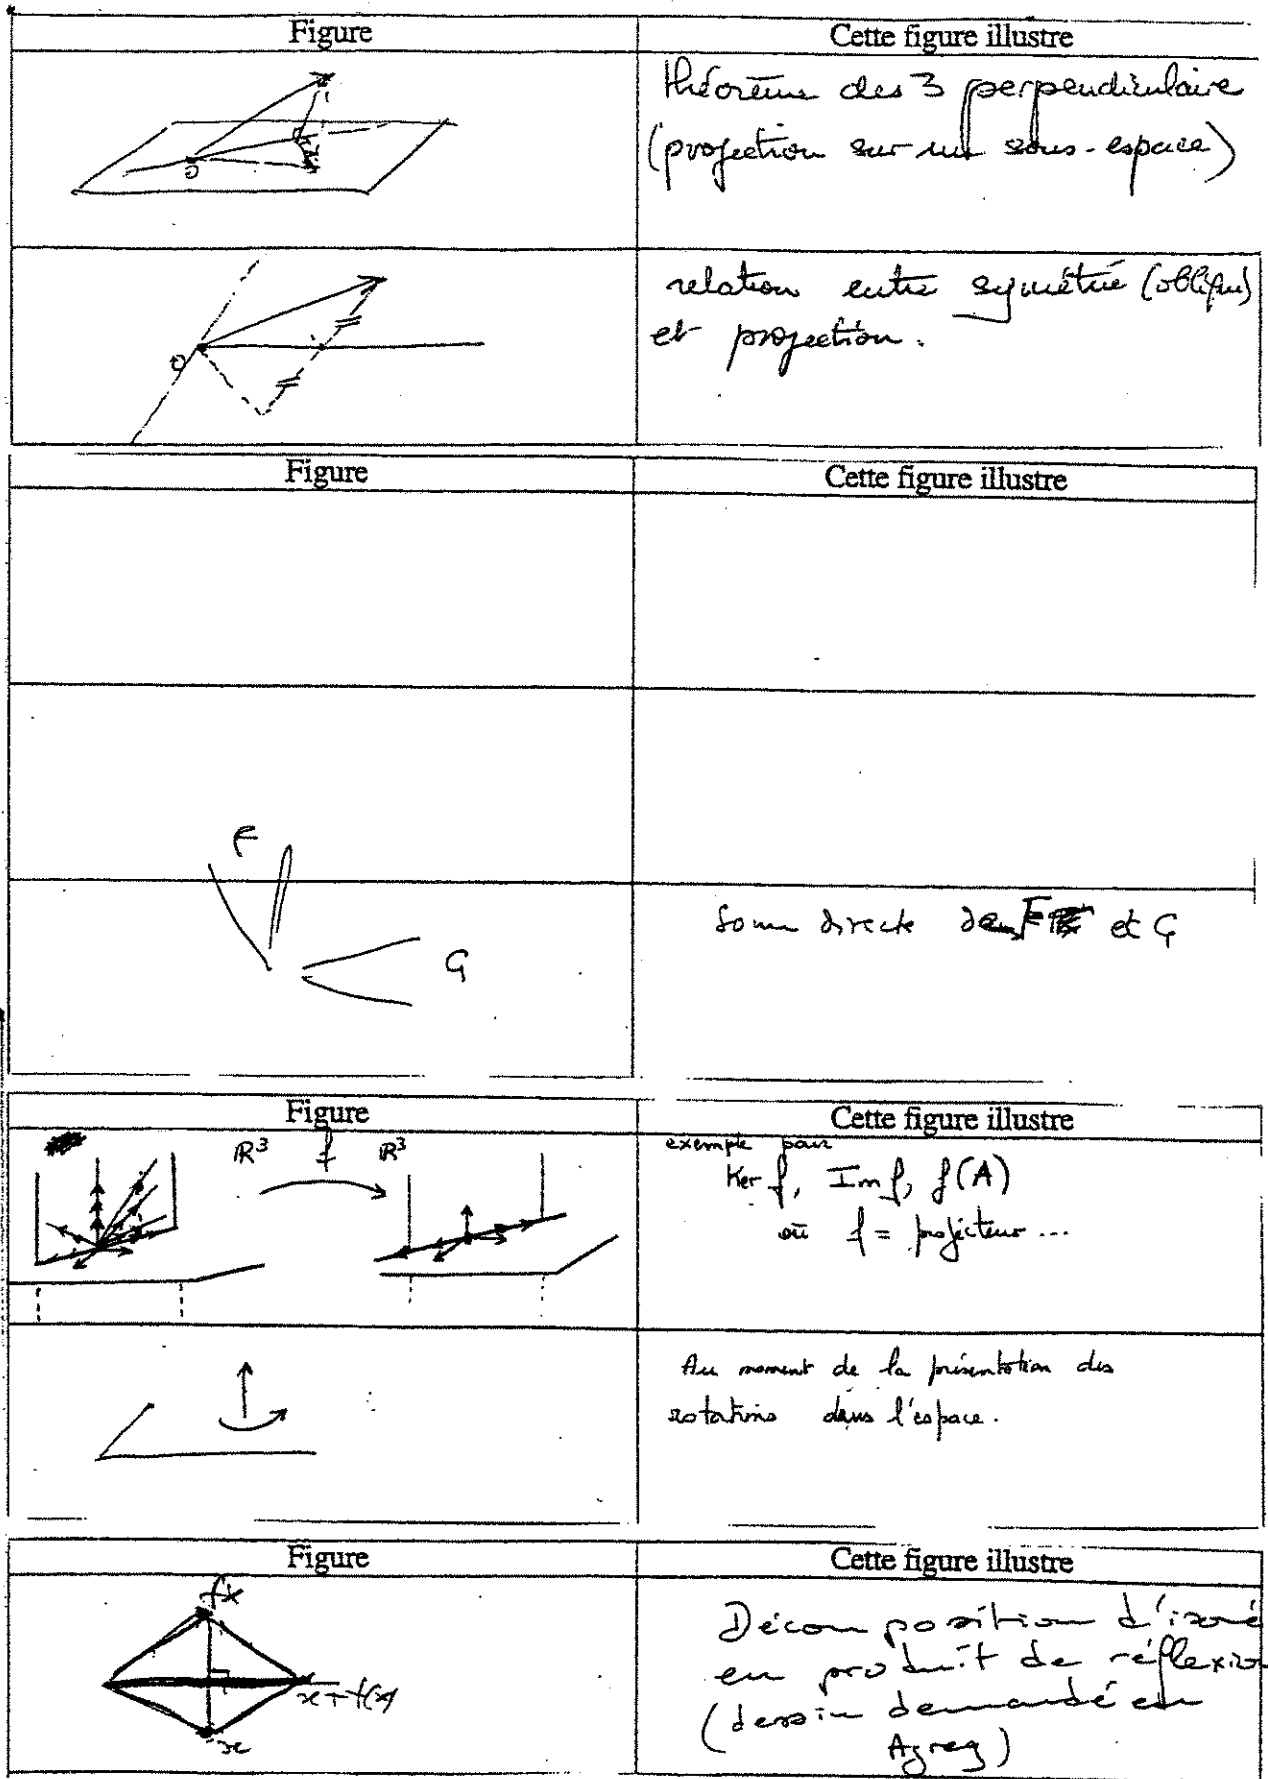 Figure
Cette figure illustre
O
théorème des 3 perpendiculaire
(projection sur un sous-espace)
O
relation entre symétrie (oblique)
et projection.
Figure
Cette figure illustre
F
G
Somme directe de F et G
Figure
Cette figure illustre
R³ f R³
exemple pour
Ker f, Im f, f(A)
où f = projecteur ...
Au moment de la présentation des
rotations dans l'espace.
Figure
Cette figure illustre
fx
x+f(x)
x
Décomposition d'isomé
en produit de réflexion
(dessin demandé en
Agreg)